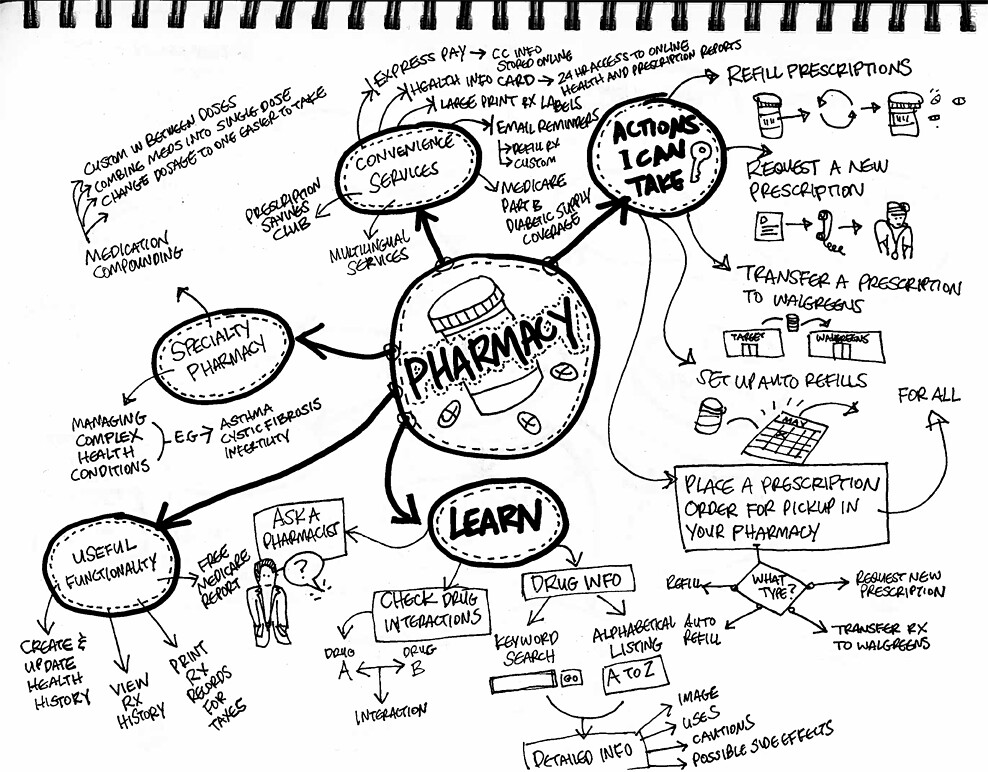 EXPRESS PAY → CC INFO
STORED ONLINE
HEALTH INFO CARD → 24 HR ACCESS TO ONLINE
HEALTH AND PRESCRIPTION REPORTS
LARGE PRINT RX LABELS
EMAIL REMINDERS
REFILL RX
CUSTOM
MEDICARE
PART B
DIABETIC SUPPLY
COVERAGE
CONVENIENCE
SERVICES
PRESCRIPTION
SAVINGS
CLUB
MULTILINGUAL
SERVICES
CUSTOM IN BETWEEN DOSES
COMBINING MEDS INTO SINGLE DOSE
CHANGE DOSAGE TO ONE EASIER TO TAKE
MEDICATION
COMPOUNDING
SPECIALTY
PHARMACY
MANAGING
COMPLEX
HEALTH
CONDITIONS
E.G →
ASTHMA
CYSTIC FIBROSIS
INFERTILITY
PHARMACY
ACTIONS
I CAN
TAKE
REFILL PRESCRIPTIONS
REQUEST A NEW
PRESCRIPTION
TRANSFER A PRESCRIPTION
TO WALGREENS
TARGET
WALGREENS
SET UP AUTO REFILLS
MAY
FOR ALL
PLACE A PRESCRIPTION
ORDER FOR PICKUP IN
YOUR PHARMACY
WHAT
TYPE?
REFILL
AUTO
REFILL
REQUEST NEW
PRESCRIPTION
TRANSFER RX
TO WALGREENS
USEFUL
FUNCTIONALITY
FREE
MEDICARE
REPORT
CREATE &
UPDATE
HEALTH
HISTORY
VIEW
RX
HISTORY
PRINT
RX
RECORDS
FOR
TAXES
LEARN
ASK A
PHARMACIST
?
CHECK DRUG
INTERACTIONS
DRUG
A
DRUG
B
INTERACTION
DRUG INFO
KEYWORD
SEARCH
GO
ALPHABETICAL
LISTING
A TO Z
DETAILED INFO
IMAGE
USES
CAUTIONS
POSSIBLE SIDE EFFECTS